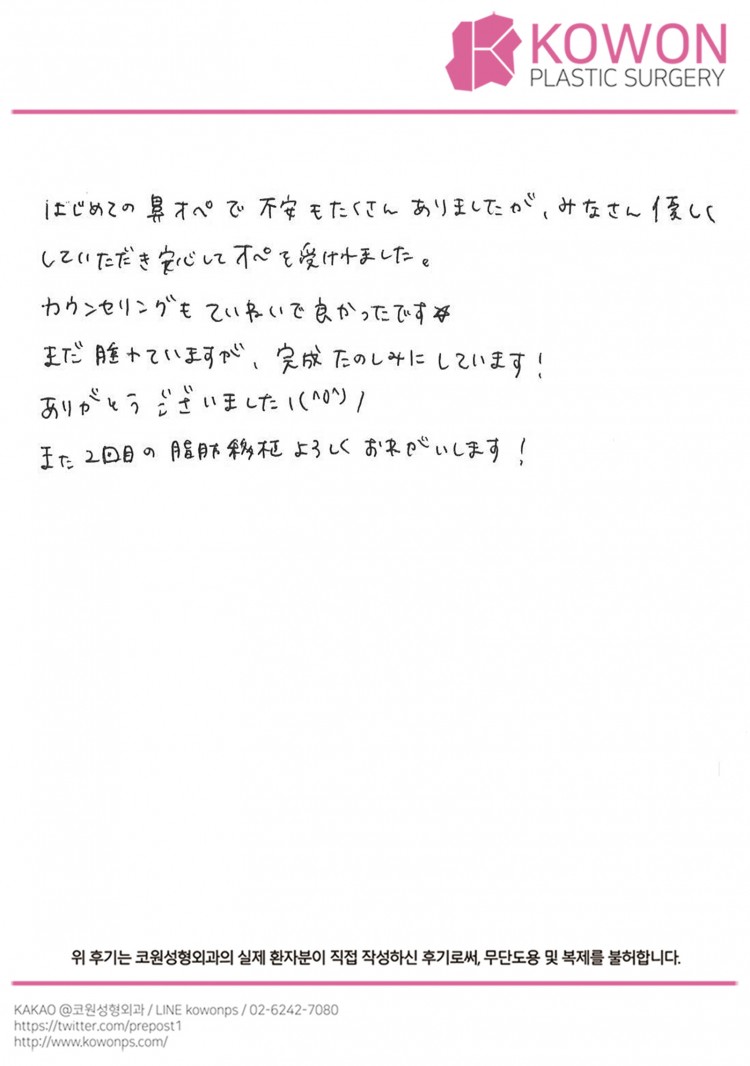 KOWON
PLASTIC SURGERY
はじめての鼻オペで不安もたくさんありましたが、みなさん優しく
していただき安心してオペを受けれました。
カウンセリングもていねいで良かったです☆
まだ腫れていますが、完成たのしみにしています!
ありがとうございました\(^o^)/
また2回目の脂肪移植よろしくおねがいします!
위 후기는 코원성형외과의 실제 환자분이 직접 작성하신 후기로써, 무단도용 및 복제를 불허합니다.
KAKAO @코원성형외과 / LINE kowonps / 02-6242-7080
https://twitter.com/prepost1
http://www.kowonps.com/